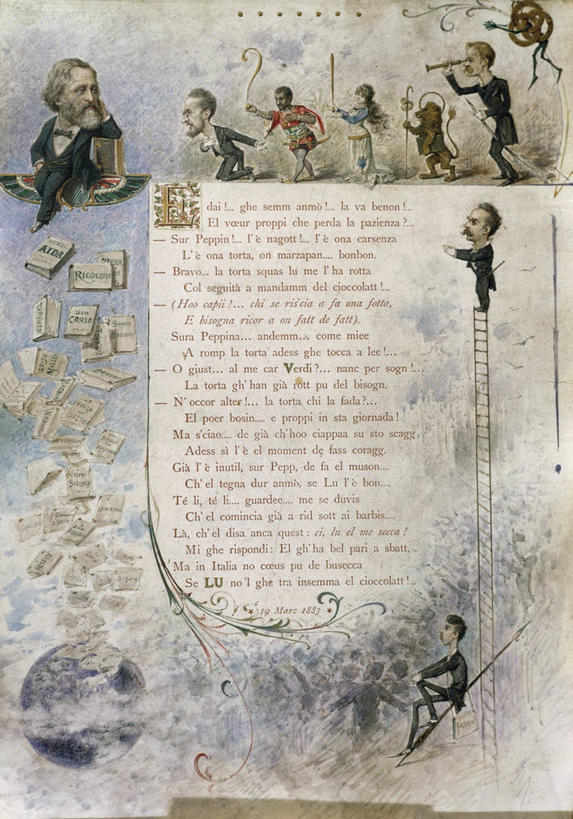 E dai!... ghe semm anmò!... la va benon!...
El vœur proppi che perda la pazienza?...
— Sur Peppin!... l'è nagott!... l'è ona carsenza
L'è ona torta, on marzapan.... bonbon.
— Bravo... la torta squas lu me l'ha rotta
Col seguità a mandamm el cioccolatt!...
— (Hoo capii!... chi se ris'cia a fa ona fotta,
E bisogna ricor a on fatt de fatt).
Sura Peppina... andemm... come miee
A romp la torta adess ghe tocca a lee!...
— O giust... al me car Verdi?... nanc per sogn!...
La torta gh'han già rott pu del bisogn.
— N'occor alter!... la torta chi la fada?...
El poer bosin.... e proppi in sta giornada!
Ma s'ciao.... de già ch'hoo ciappaa su sto scagg,
Adess sì l'è el moment de fass coragg.
Già l'è inutil, sur Pepp, de fa el muson....
Ch'el tegna dur anmò, se Lu l'è bon....
Té lì, té lì.... guardee.... me se duvis
Ch'el comincia già a rid sott ai barbis....
Là, ch'el disa anca quest: ci, lu el me secca!
Mi ghe rispondi: El gh'ha bel pari a sbatt,
Ma in Italia no cœus pu de busecca
Se LU no'l ghe tra insemma el cioccolatt!...
19 Marz 1883
AIDA
RIGOLETTO
DON CARLO